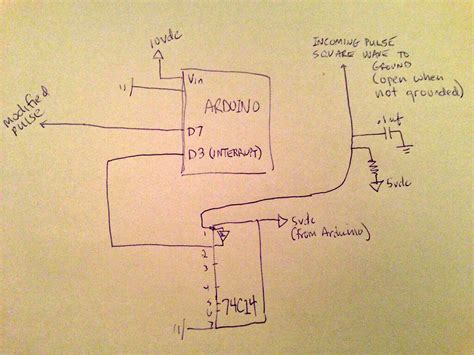 10vdc
Vin
ARDUINO
D7
D3 (INTERRUPT)
modified
pulse
INCOMING PULSE
SQUARE WAVE TO
GROUND
(open when
not grounded)
.1uf
5vdc
5vdc
(from Arduino)
1
2
3
4
5
6
7
74C14